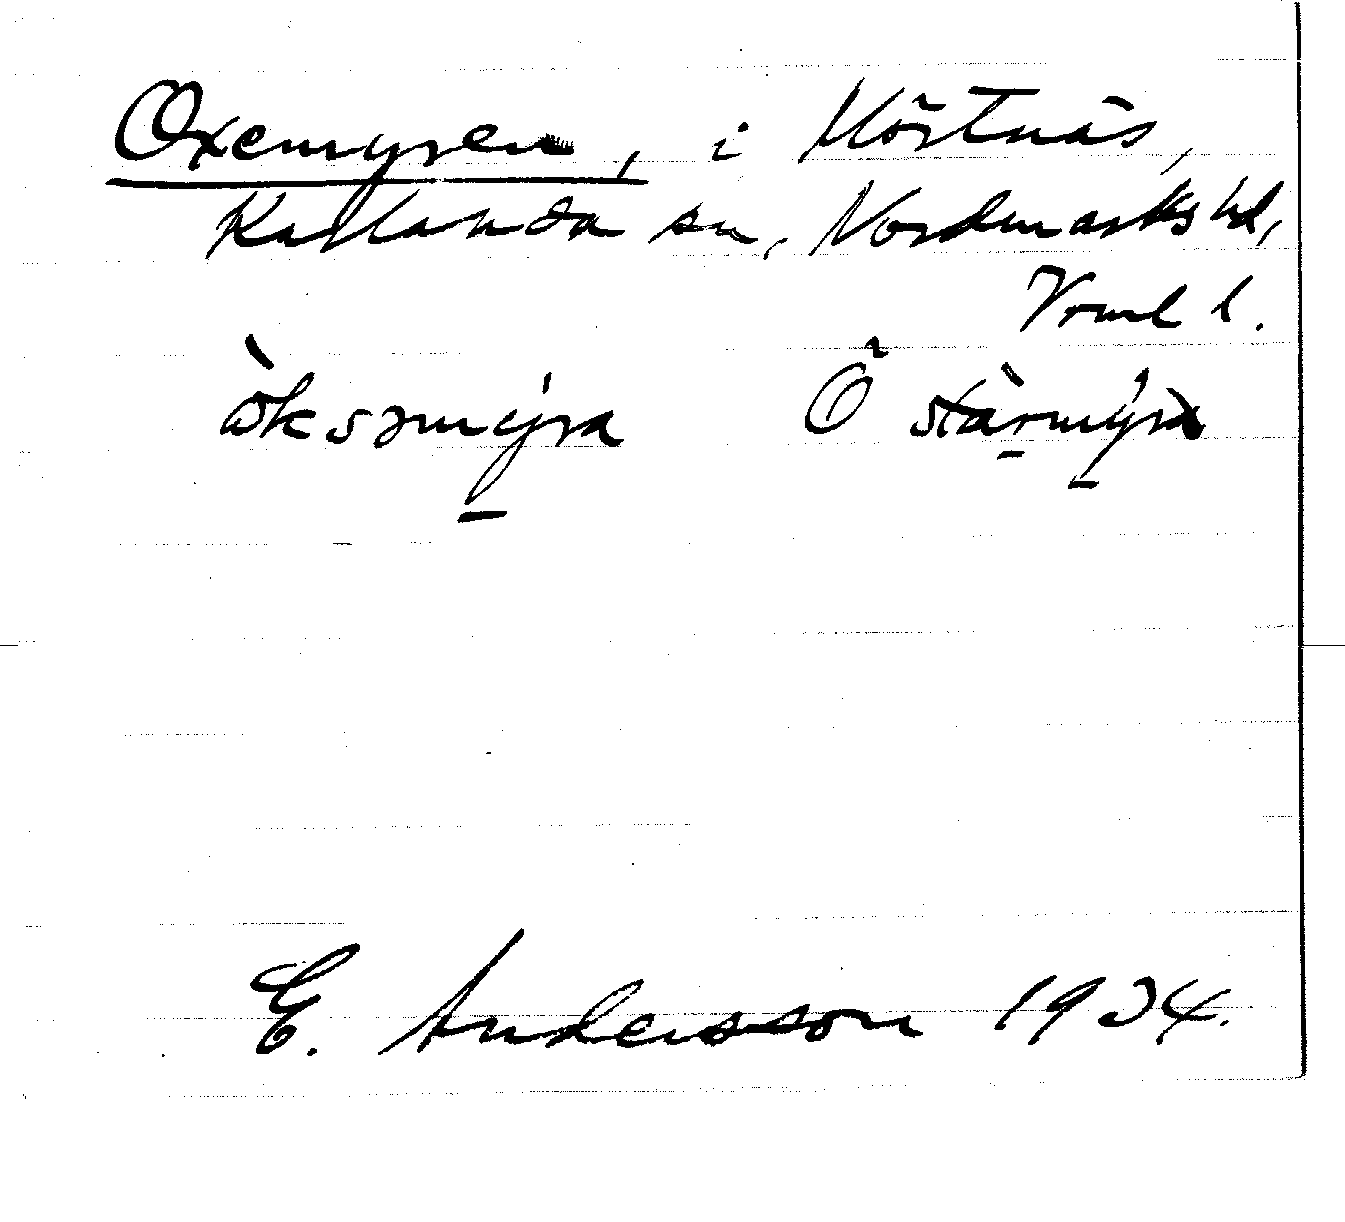 Oxemyren, i Mörtnäs,
Karlanda sn, Nordmarks hd,
Vrml l.
òksəmýra Östàrmýra
E. Andersson 1934.